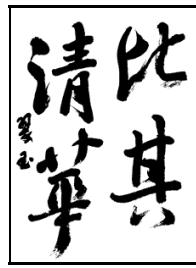 比其
清華
翠玉